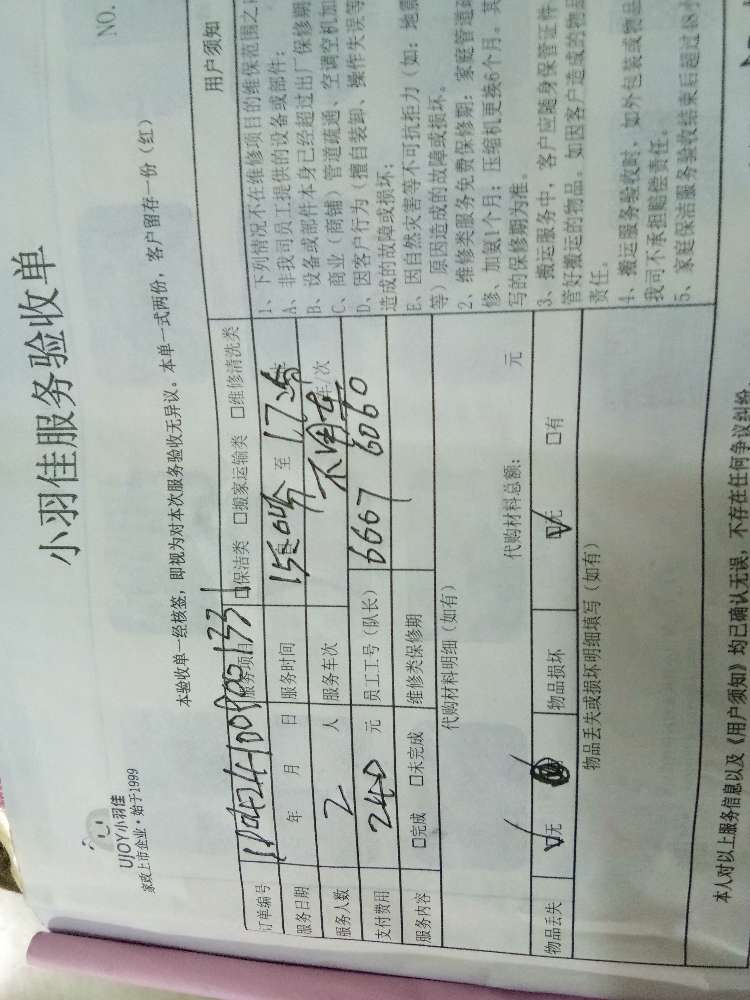 小羽佳服务验收单
UJOY小羽佳
家政上市企业·始于1999
NO.
本验收单一经核签，即视为对本次服务验收无异议。本单一式两份，客户留存一份（红）
订单编号
服务项目 口保洁类 口搬家运输类 口维修清洗类
服务日期 年 月 日 服务时间 至
服务人数 2 人 服务车次 不用车 车次
支付费用 240 元 员工工号（队长） 6667 6060
服务内容 口完成 口未完成 维修类保修期
代购材料明细（如有）
代购材料总额： 元
物品丢失 口无 物品损坏 口无 口有
物品丢失或损坏明细填写（如有）
用户须知
1、下列情况不在维修项目的维保范围之
A、非我司员工提供的设备或部件；
B、设备或部件本身已经超过出厂保修期
C、商业（商铺）管道疏通、空调空机加
D、因客户行为（擅自装卸、操作失误等
造成的故障或损坏；
E、因自然灾害等不可抗拒力（如：地震
等）原因造成的故障或损坏。
2、维修类服务免费保修期：家庭管道疏
修、加氨1个月；压缩机更换6个月。其
写的保修期为准。
3、搬运服务中，客户应随身保管证件
管好搬运的物品。如因客户造成的物品
责任。
4、搬运服务验收时，如外包装或物品
我司不承担赔偿责任。
5、家庭保洁服务验收结束后超过48小
本人对以上服务信息以及《用户须知》均已确认无误，不存在任何争议纠纷